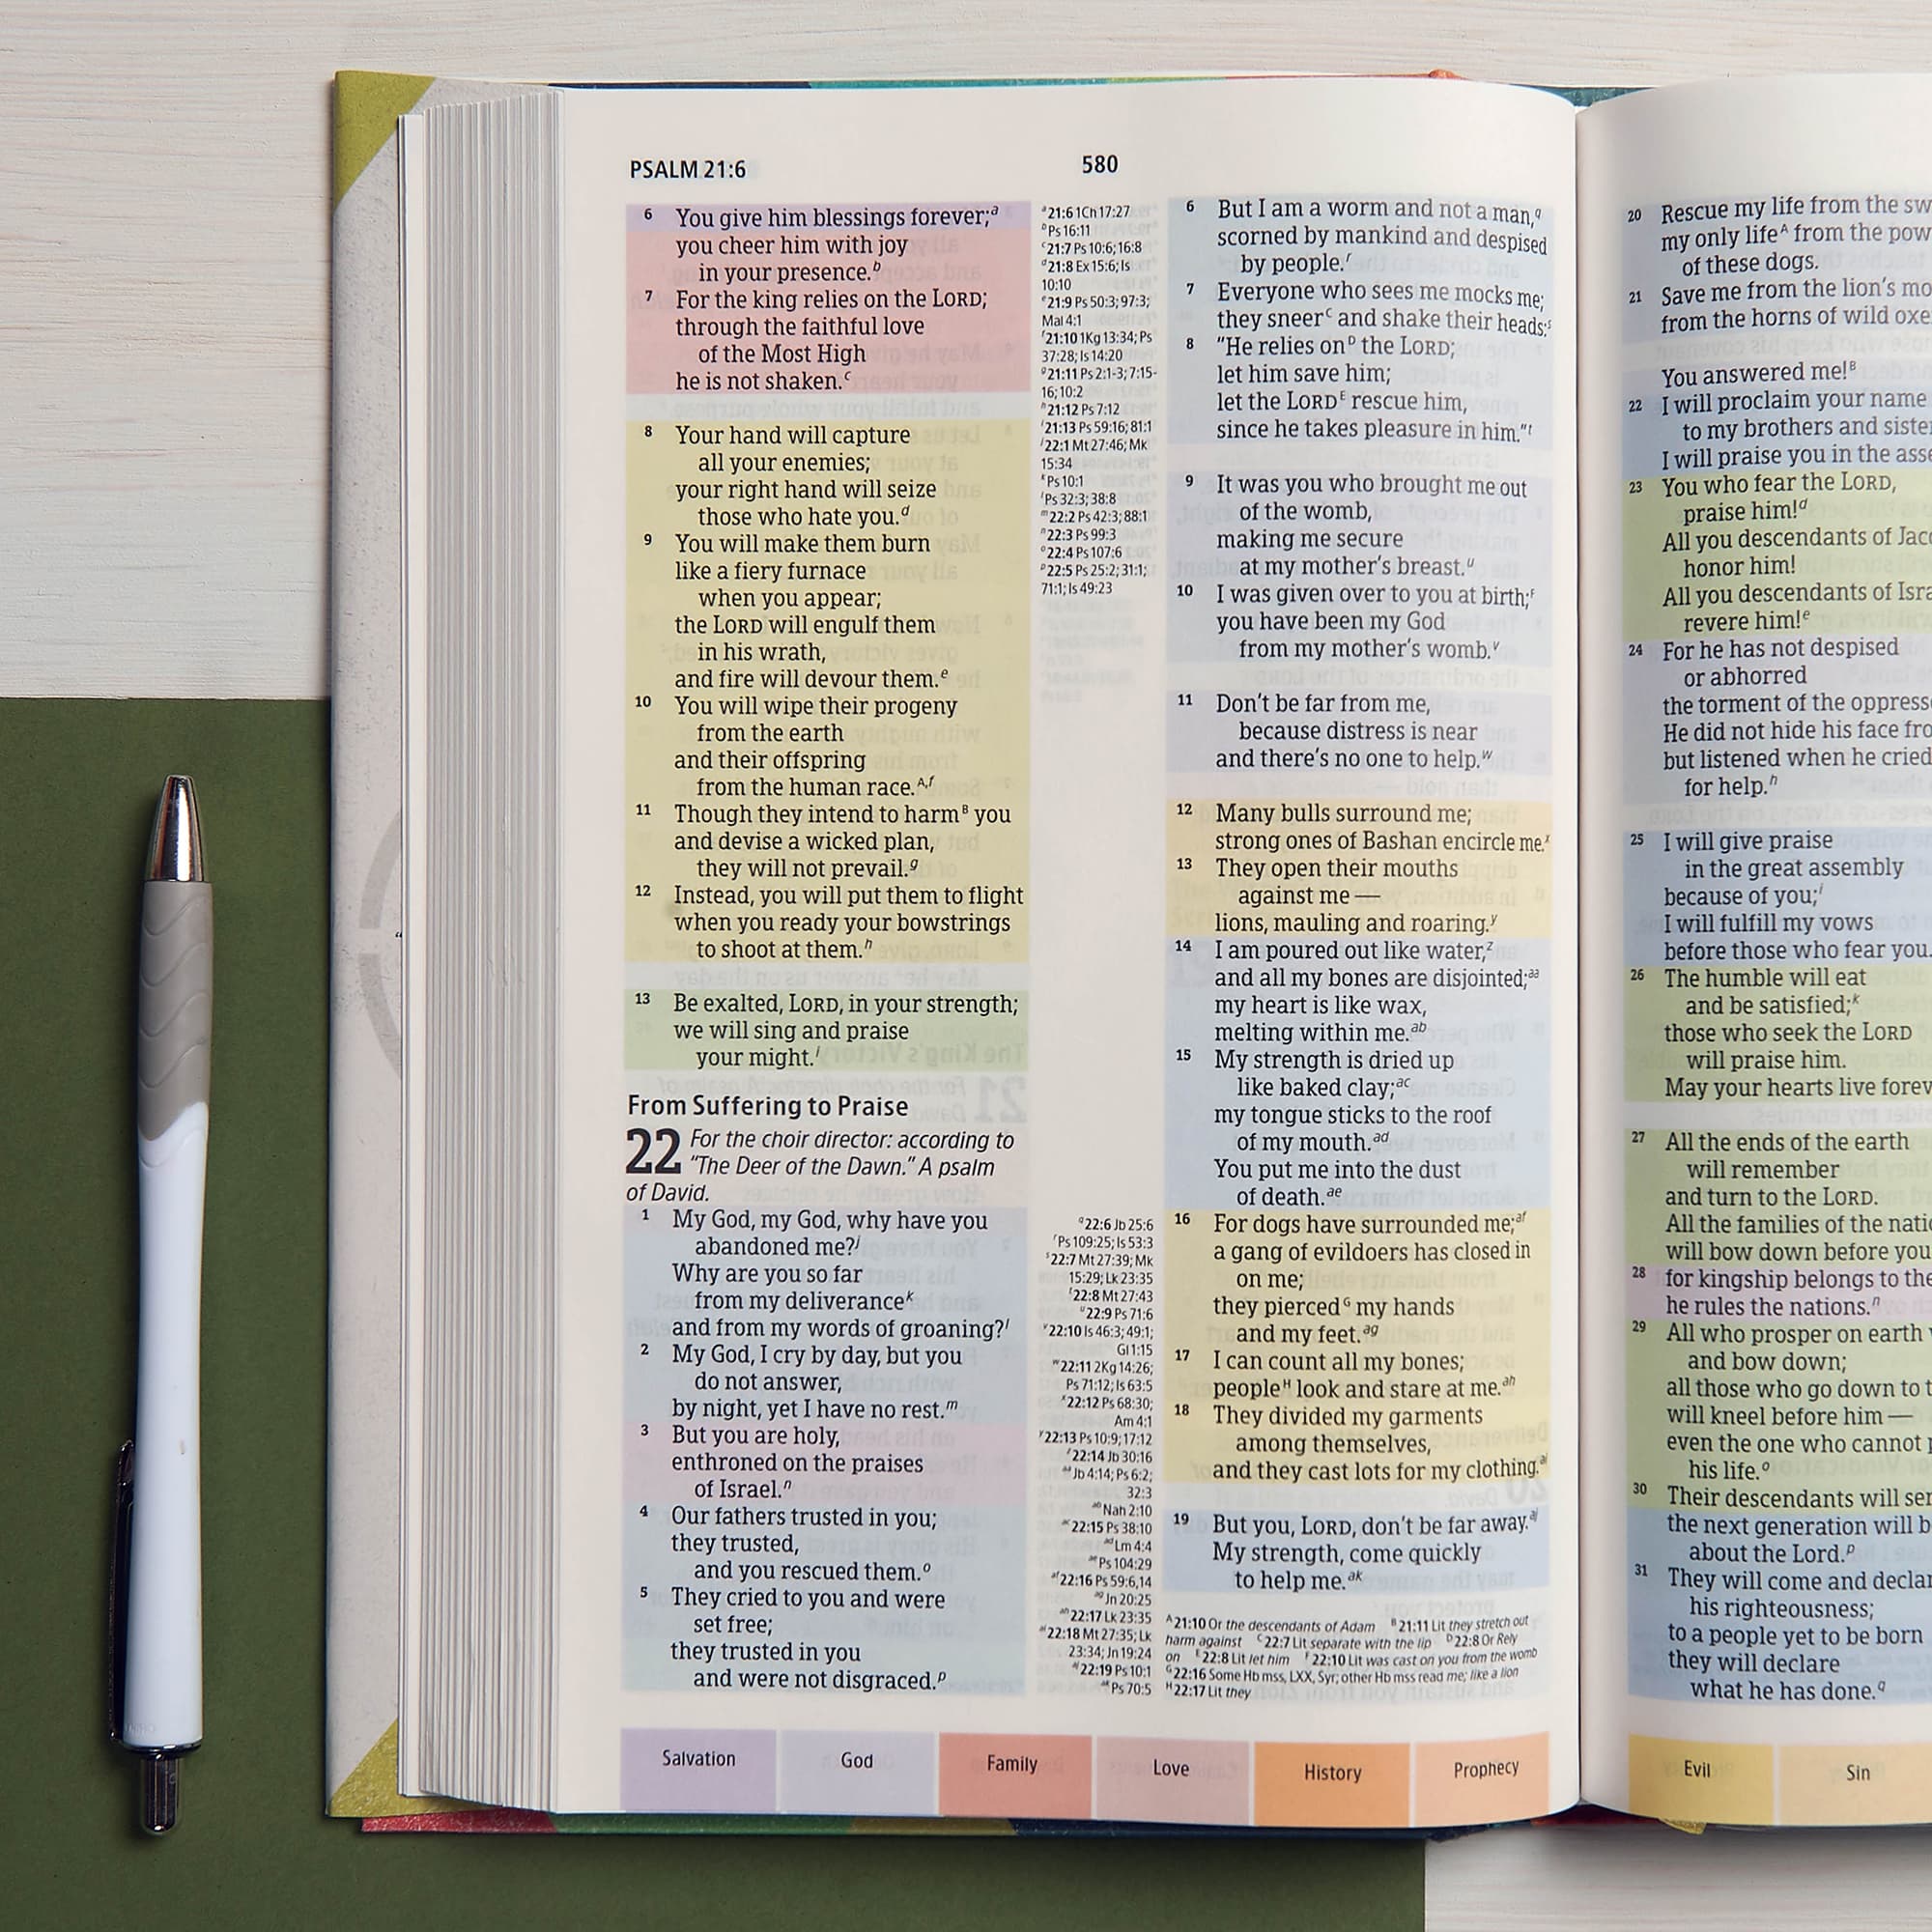 PSALM 21:6
580
6 You give him blessings forever;a
you cheer him with joy
in your presence.b
7 For the king relies on the LORD;
through the faithful love
of the Most High
he is not shaken.c
8 Your hand will capture
all your enemies;
your right hand will seize
those who hate you.d
9 You will make them burn
like a fiery furnace
when you appear;
the LORD will engulf them
in his wrath,
and fire will devour them.e
10 You will wipe their progeny
from the earth
and their offspring
from the human race.A,f
11 Though they intend to harmB you
and devise a wicked plan,
they will not prevail.g
12 Instead, you will put them to flight
when you ready your bowstrings
to shoot at them.h
13 Be exalted, LORD, in your strength;
we will sing and praise
your might.i
From Suffering to Praise
22 For the choir director: according to
"The Deer of the Dawn." A psalm
of David.
1 My God, my God, why have you
abandoned me?j
Why are you so far
from my deliverancek
and from my words of groaning?l
2 My God, I cry by day, but you
do not answer,
by night, yet I have no rest.m
3 But you are holy,
enthroned on the praises
of Israel.n
4 Our fathers trusted in you;
they trusted,
and you rescued them.o
5 They cried to you and were
set free;
they trusted in you
and were not disgraced.p
a21:6 1Ch 17:27
bPs 16:11
c21:7 Ps 10:6; 16:8
d21:8 Ex 15:6; Is
10:10
e21:9 Ps 50:3; 97:3;
Mal 4:1
f21:10 1Kg 13:34; Ps
37:28; Is 14:20
g21:11 Ps 2:1-3; 7:15-
16; 10:2
h21:12 Ps 7:12
i21:13 Ps 59:16; 81:1
j22:1 Mt 27:46; Mk
15:34
kPs 10:1
lPs 32:3; 38:8
m22:2 Ps 42:3; 88:1
n22:3 Ps 99:3
o22:4 Ps 107:6
p22:5 Ps 25:2; 31:1;
71:1; Is 49:23
q22:6 Jb 25:6
rPs 109:25; Is 53:3
s22:7 Mt 27:39; Mk
15:29; Lk 23:35
t22:8 Mt 27:43
u22:9 Ps 71:6
v22:10 Is 46:3; 49:1;
Gl 1:15
w22:11 2Kg 14:26;
Ps 71:12; Is 63:5
x22:12 Ps 68:30;
Am 4:1
y22:13 Ps 10:9; 17:12
z22:14 Jb 30:16
aaJb 4:14; Ps 6:2;
32:3
abNah 2:10
ac22:15 Ps 38:10
adLm 4:4
aePs 104:29
af22:16 Ps 59:6,14
agJn 20:25
ah22:17 Lk 23:35
ai22:18 Mt 27:35; Lk
23:34; Jn 19:24
aj22:19 Ps 10:1
akPs 70:5
6 But I am a worm and not a man,q
scorned by mankind and despised
by people.r
7 Everyone who sees me mocks me;
they sneerC and shake their heads:s
8 "He relies onD the LORD;
let him save him;
let the LORDE rescue him,
since he takes pleasure in him."t
9 It was you who brought me out
of the womb,
making me secure
at my mother's breast.u
10 I was given over to you at birth;F
you have been my God
from my mother's womb.v
11 Don't be far from me,
because distress is near
and there's no one to help.w
12 Many bulls surround me;
strong ones of Bashan encircle me.x
13 They open their mouths
against me —
lions, mauling and roaring.y
14 I am poured out like water,z
and all my bones are disjointed;aa
my heart is like wax,
melting within me.ab
15 My strength is dried up
like baked clay;ac
my tongue sticks to the roof
of my mouth.ad
You put me into the dust
of death.ae
16 For dogs have surrounded me;af
a gang of evildoers has closed in
on me;
they piercedG my hands
and my feet.ag
17 I can count all my bones;
peopleH look and stare at me.ah
18 They divided my garments
among themselves,
and they cast lots for my clothing.ai
19 But you, LORD, don't be far away.aj
My strength, come quickly
to help me.ak
A21:10 Or the descendants of Adam B21:11 Lit they stretch out
harm against C22:7 Lit separate with the lip D22:8 Or Rely
on E22:8 Lit let him F22:10 Lit was cast on you from the womb
G22:16 Some Hb mss, LXX, Syr; other Hb mss read me; like a lion
H22:17 Lit they
Salvation
God
Family
Love
History
Prophecy
20 Rescue my life from the
my only lifeA from the
of these dogs.
21 Save me from the lion's
from the horns of wild
You answered me!B
22 I will proclaim your name
to my brothers and
I will praise you in the
23 You who fear the LORD,
praise him!d
All you descendants of
honor him!
All you descendants of
revere him!e
24 For he has not despised
or abhorred
the torment of the
He did not hide his face
but listened when he cried
for help.h
25 I will give praise
in the great assembly
because of you;i
I will fulfill my vows
before those who fear you.
26 The humble will eat
and be satisfied;k
those who seek the LORD
will praise him.
May your hearts live
27 All the ends of the earth
will remember
and turn to the LORD.
All the families of the
will bow down before you
28 for kingship belongs to the
he rules the nations.n
29 All who prosper on earth
and bow down;
all those who go down to
will kneel before him —
even the one who cannot
his life.o
30 Their descendants will
the next generation will
about the Lord.p
31 They will come and
his righteousness;
to a people yet to be born
they will declare
what he has done.q
Evil
Sin